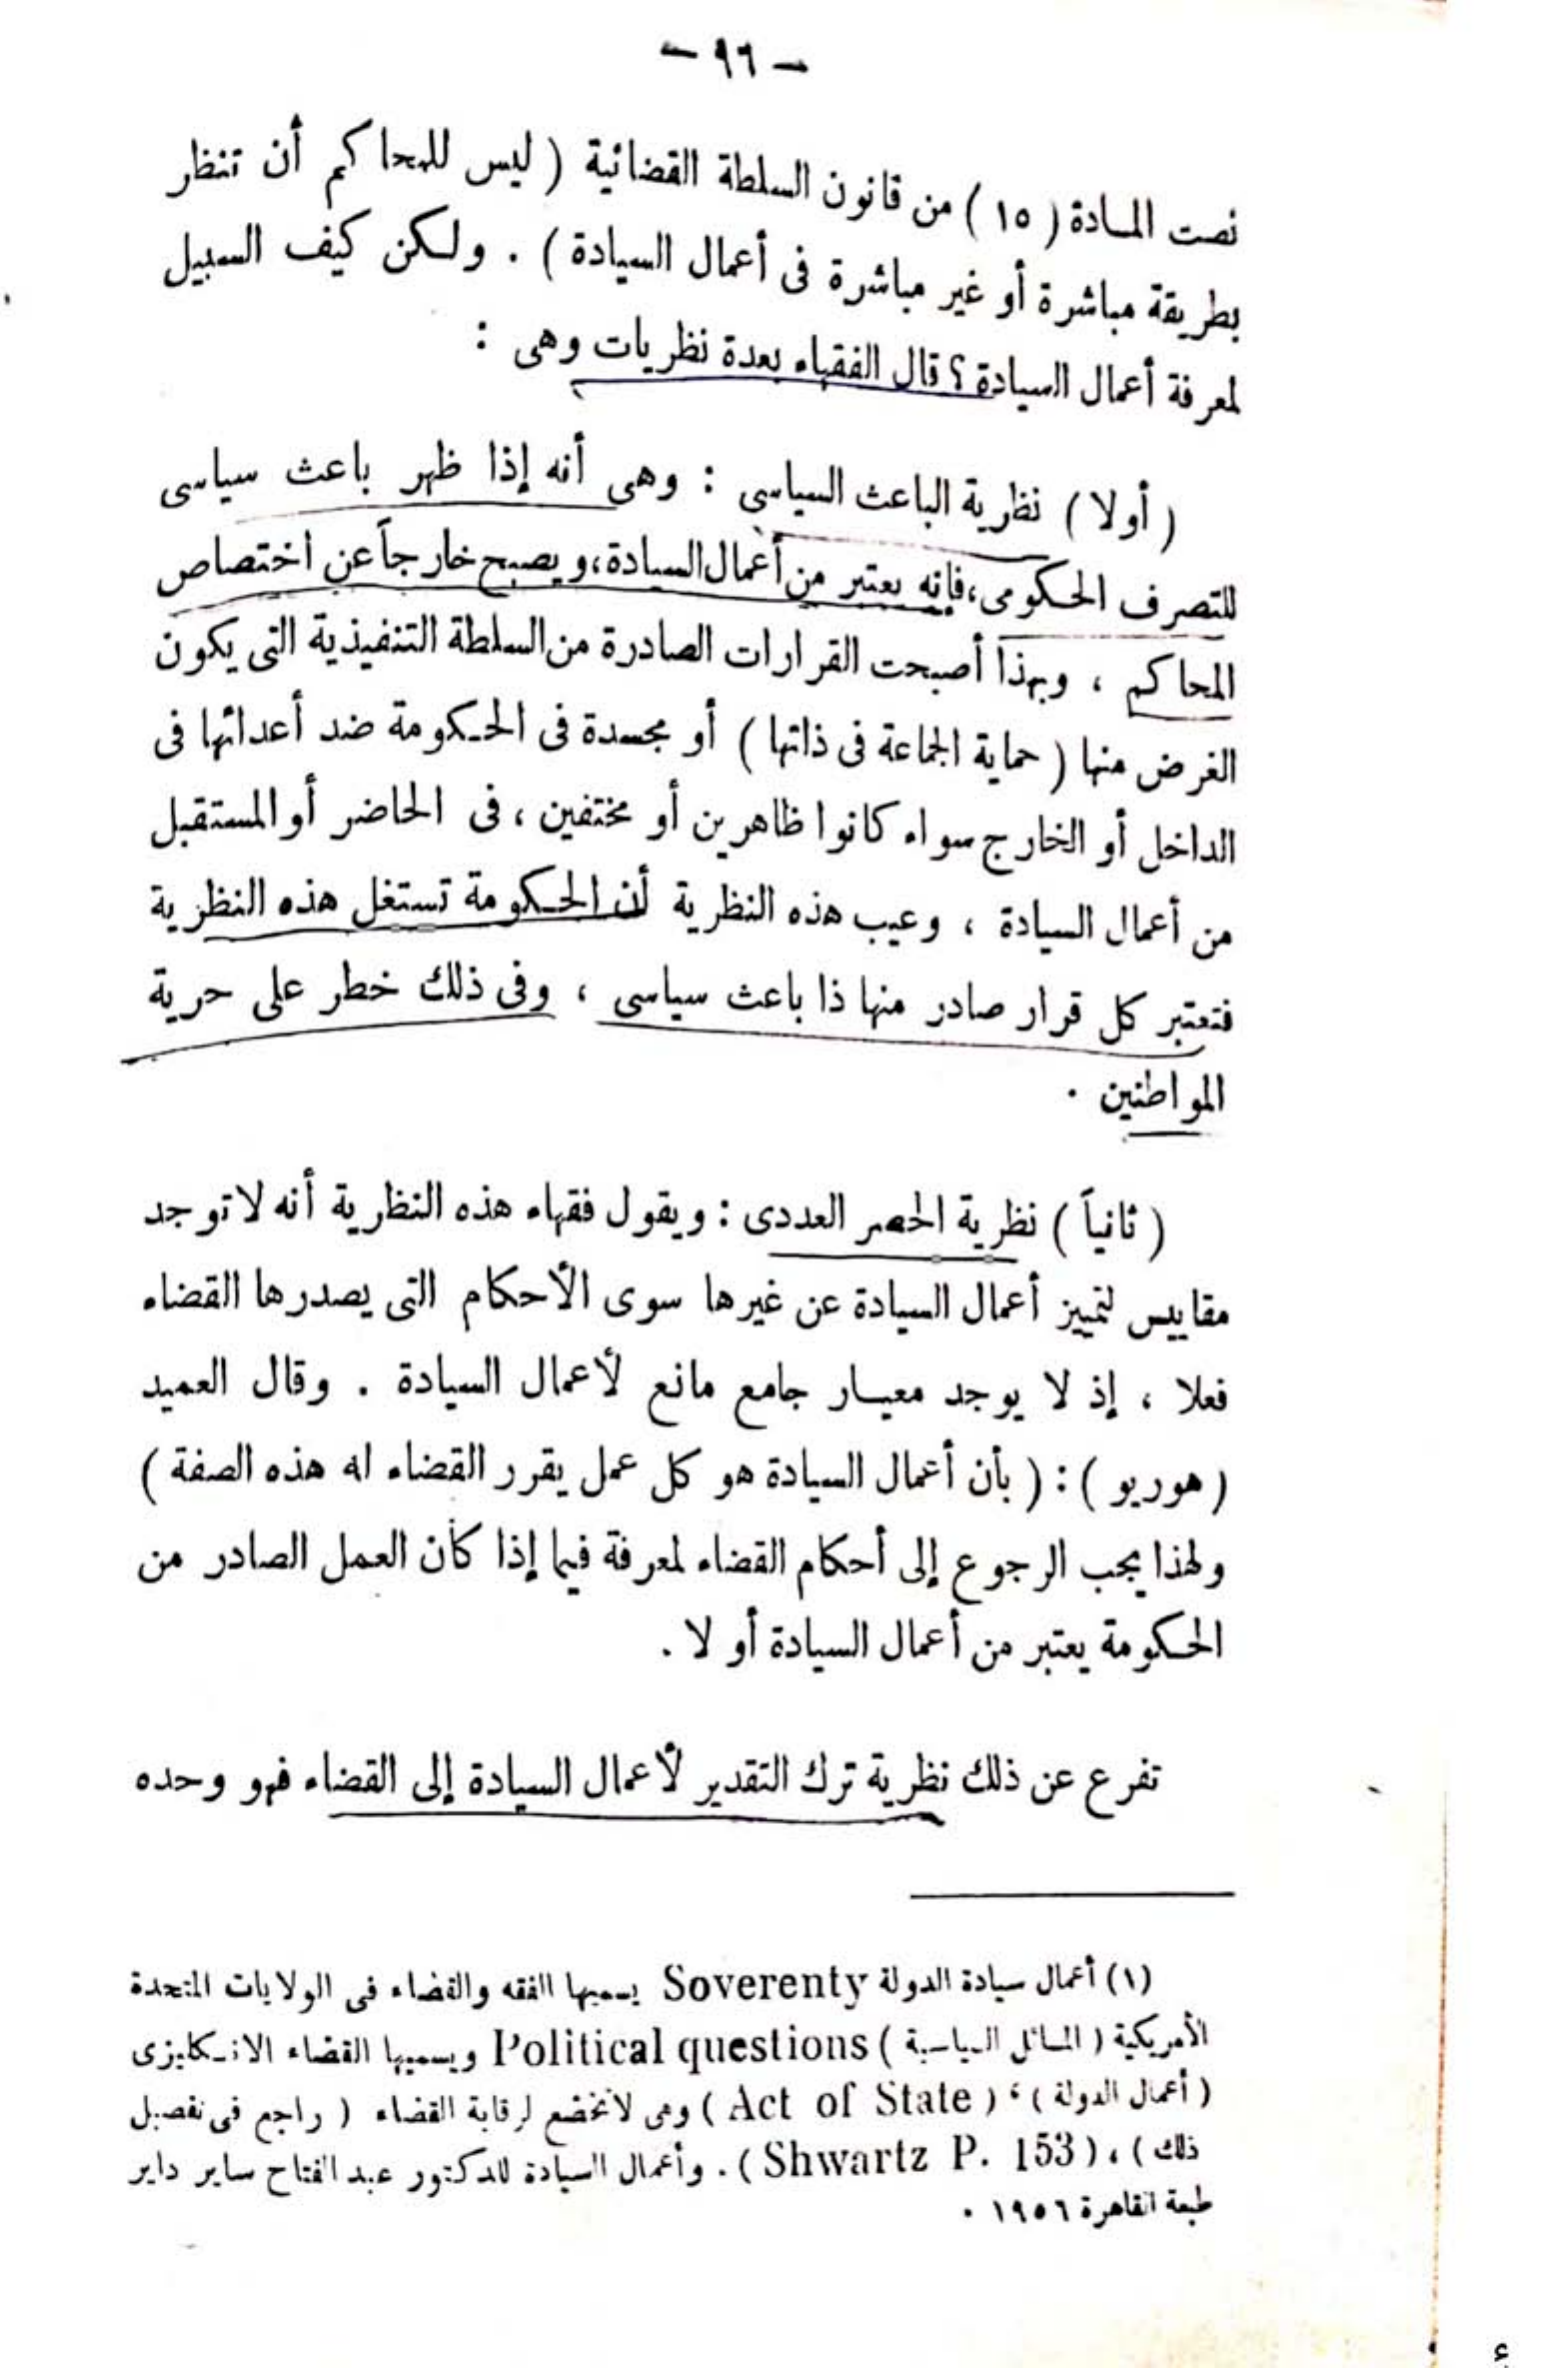 — ٩٦ —
نصت المادة ( ١٥ ) من قانون السلطة القضائية ( ليس للمحاكم أن تنظر
بطريقة مباشرة أو غير مباشرة فى أعمال السيادة ) . ولكن كيف السبيل
لمعرفة أعمال السيادة ؟ قال الفقهاء بعدة نظريات وهى :
( أولا ) نظرية الباعث السياسى : وهى أنه إذا ظهر باعث سياسى
للتصرف الحكومى ، فإنه يعتبر من أعمال السيادة ، ويصبح خارجاً عن اختصاص
المحاكم ، وبهذا أصبحت القرارات الصادرة من السلطة التنفيذية التى يكون
الغرض منها ( حماية الجماعة فى ذاتها ) أو مجسدة فى الحكومة ضد أعدائها فى
الداخل أو الخارج سواء كانوا ظاهرين أو مختفين ، فى الحاضر أو المستقبل
من أعمال السيادة ، وعيب هذه النظرية أن الحكومة تستغل هذه النظرية
فتعتبر كل قرار صادر منها ذا باعث سياسى ، وفى ذلك خطر على حرية
المواطنين .
( ثانياً ) نظرية الحصر العددى : ويقول فقهاء هذه النظرية أنه لا توجد
مقاييس لتمييز أعمال السيادة عن غيرها سوى الأحكام التى يصدرها القضاء
فعلا ، إذ لا يوجد معيار جامع مانع لأعمال السيادة . وقال العميد
( هوريو ) : ( بأن أعمال السيادة هو كل عمل يقرر القضاء له هذه الصفة )
ولهذا يجب الرجوع إلى أحكام القضاء لمعرفة فيما إذا كان العمل الصادر من
الحكومة يعتبر من أعمال السيادة أو لا .
تفرع عن ذلك نظرية ترك التقدير لأعمال السيادة إلى القضاء فهو وحده
(١) أعمال سيادة الدولة Soverenty يسميها الفقه والقضاء فى الولايات المتحدة
الأمريكية ( المسائل السياسية ) Political questions ويسميها القضاء الانكليزى
( أعمال الدولة ) ، ( Act of State ) وهى لا تخضع لرقابة القضاء ( راجع فى تفصيل
ذلك ) ، ( Shwartz P. 153 ) . وأعمال السيادة للدكتور عبد الفتاح ساير داير
طبعة القاهرة ١٩٥٦ .